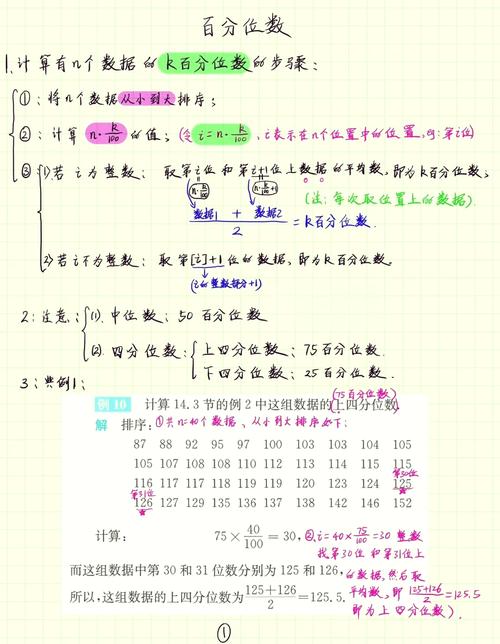 百分位数
1.计算有n个数据的 k百分位数的步骤：
①：将n个数据从小到大排序；
②：计算 n·k/100 的值；(令 i=n·k/100，i表示在n个位置中的位置，eg：第i位)
③ (1)若 i为整数： 取第i位 和 第i+1位上数据的平均数，即为k百分位数；
(n·k/100) (n·k/100+1) (注：每次取位置上的数据)
数据1 + 数据2 / 2 = k百分位数.
(2)若i不为整数： 取 第[i]+1位的数据，即为k百分位数。
(i的整数部分+1)
2：注意：(1).中位数：50百分位数
(2).四分位数：上四分位数：75百分位数.
下四分位数：25百分位数.
3：典例1：
(75百分位数)
例10 计算 14.3 节的例 2 中这组数据的上四分位数.
解 排序：①共n=40个数据、从小到大排序如下：
87 88 92 95 97 100 103 103 104 105
105 107 108 108 110 112 113 114 115 115
第30位
116 117 117 118 119 119 120 123 124 125
第31位
126 127 129 135 136 137 138 142 146 152
计算： 75×40/100=30， ②i=40×75/100=30 整数
找第30位 和第31位上
而这组数据中第 30 和 31 位数分别为 125 和 126， 的数据，然后取
所以，这组数据的上四分位数为 125+126/2=125.5. 平均数，即 125+126/2=125.5
即为上四分位数)
①